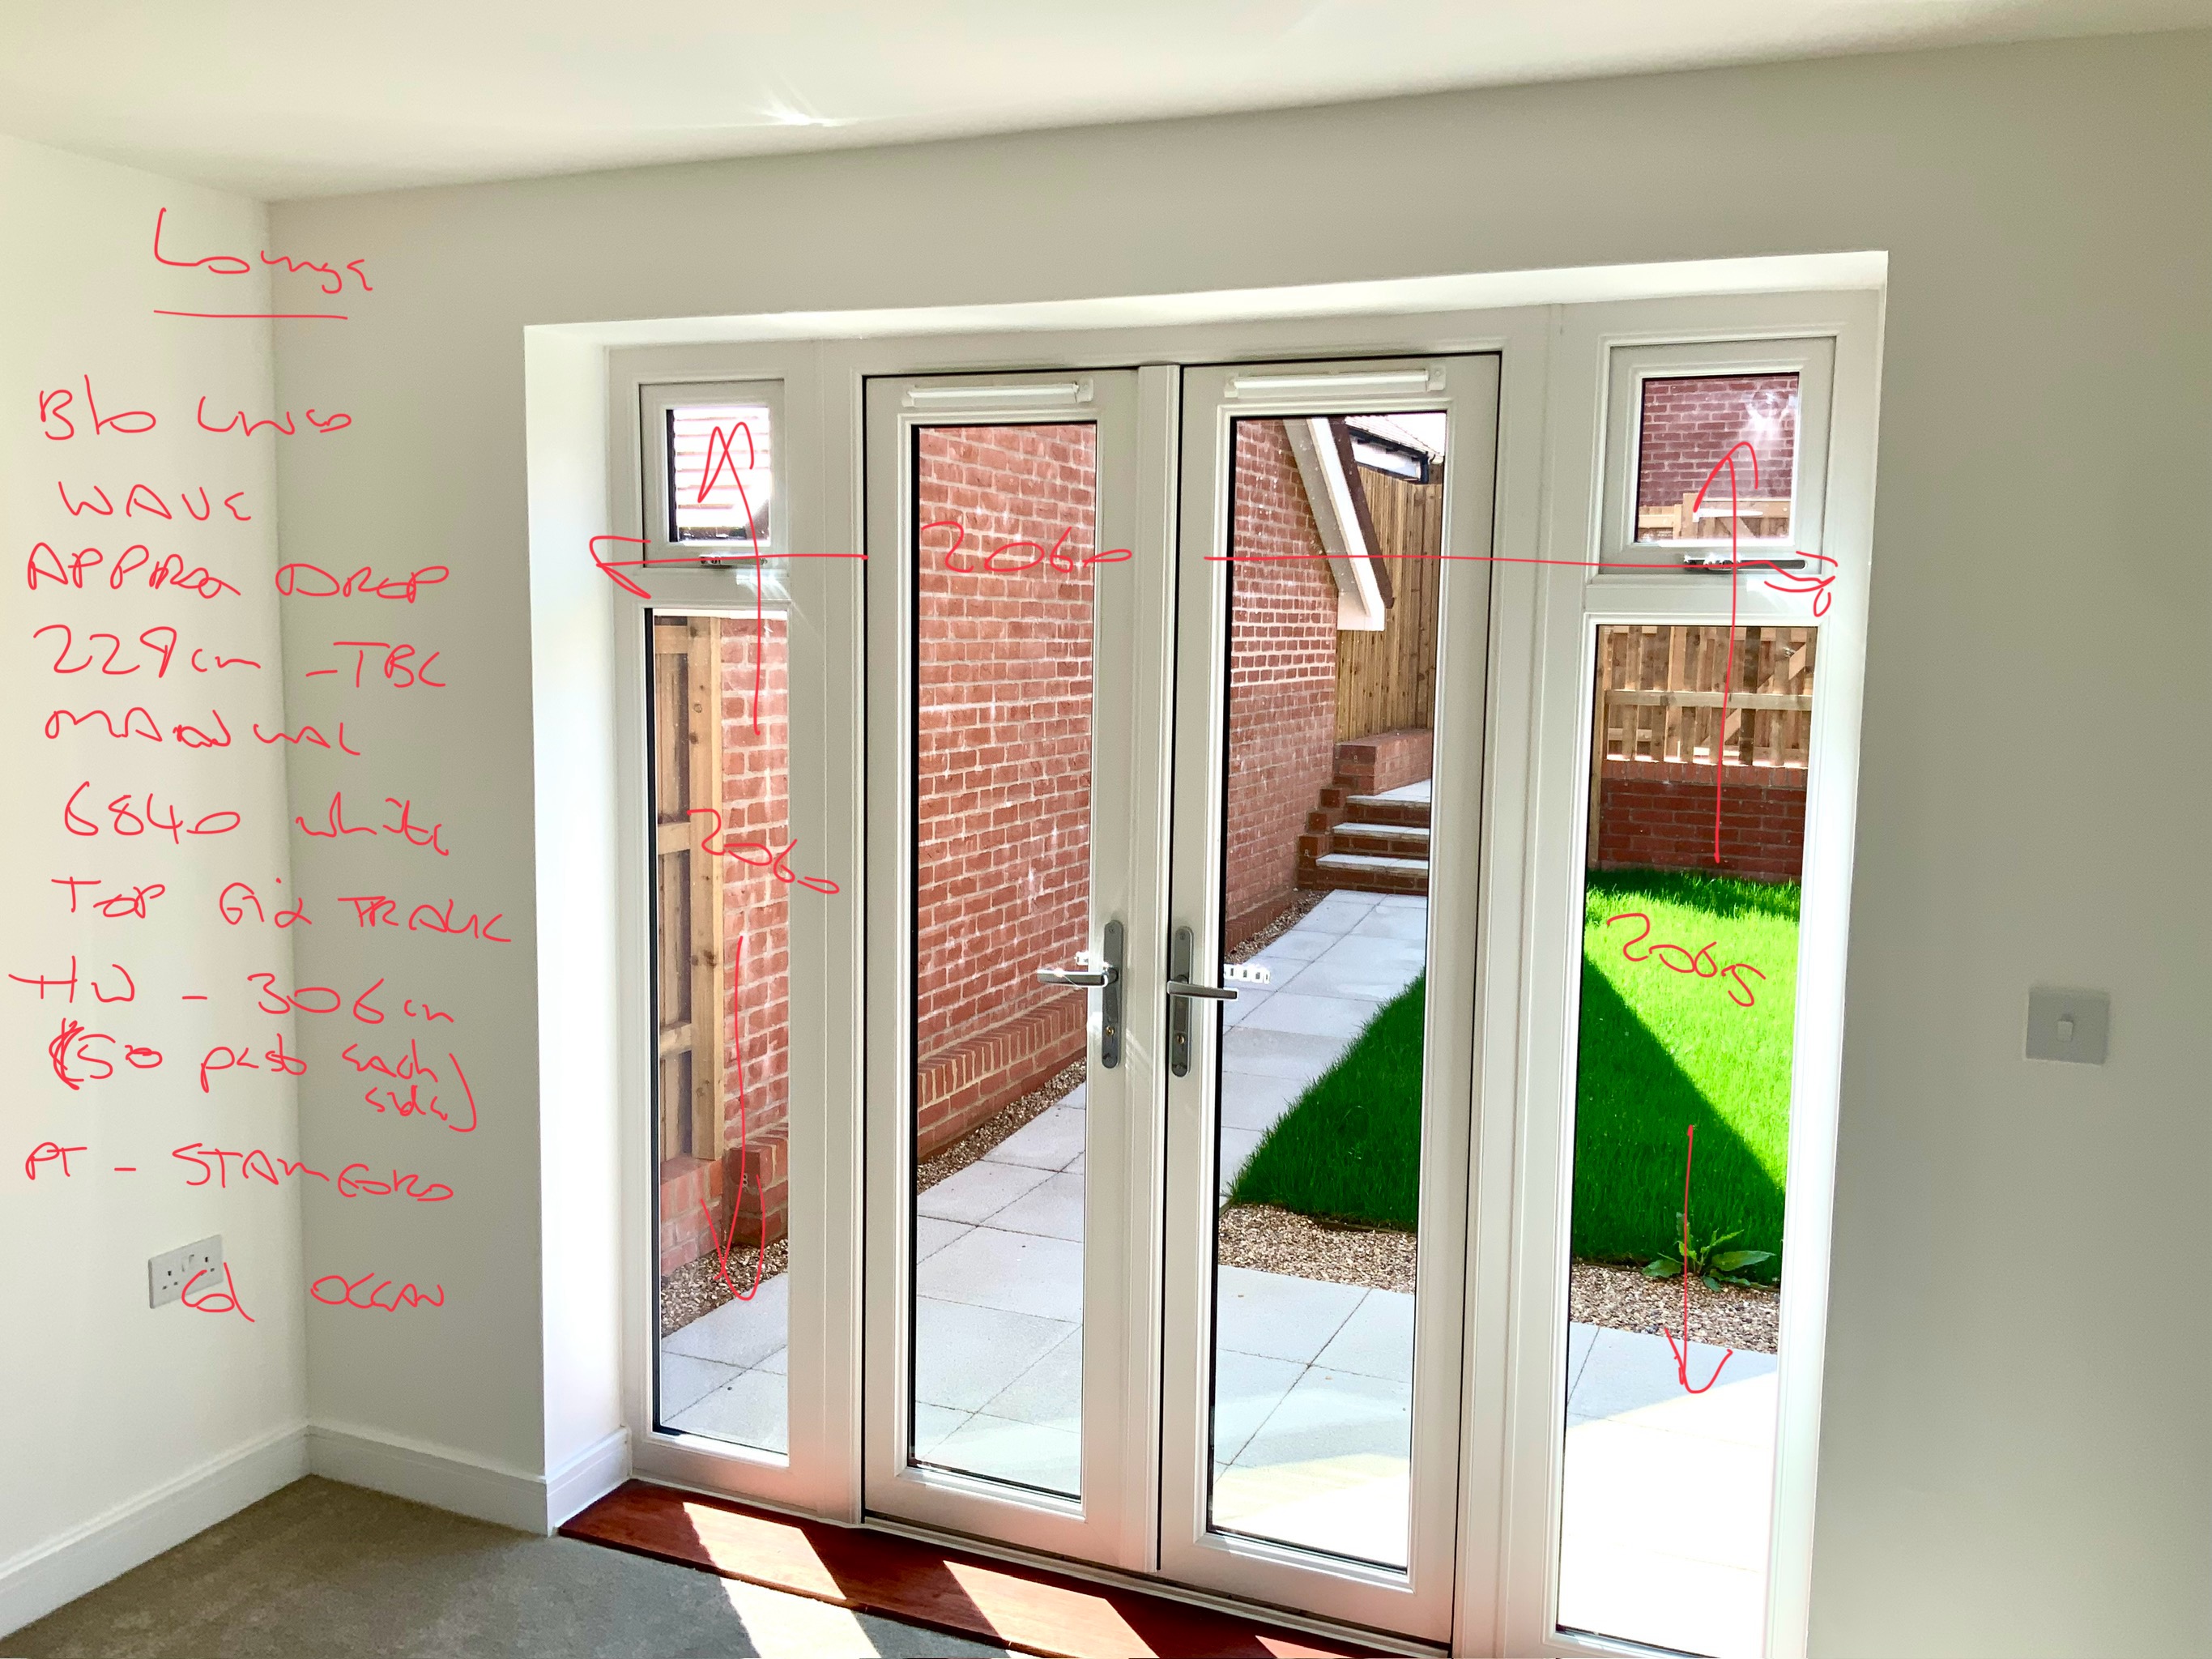 Lounge
B/o Lined
WAVE
APPROX DROP
229cm - TBC
MANUAL
6840 white
TOP Fix TRACK
HW - 306cm
(50 past each
side)
PT - STAMFORD
Col OCEAN
2060
2060
2065